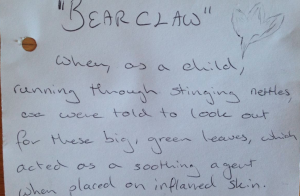 "BEARCLAW"
When, as a child,
running through stinging nettles,
we were told to look out
for these big, green leaves, which
acted as a soothing agent
when placed on inflamed skin.